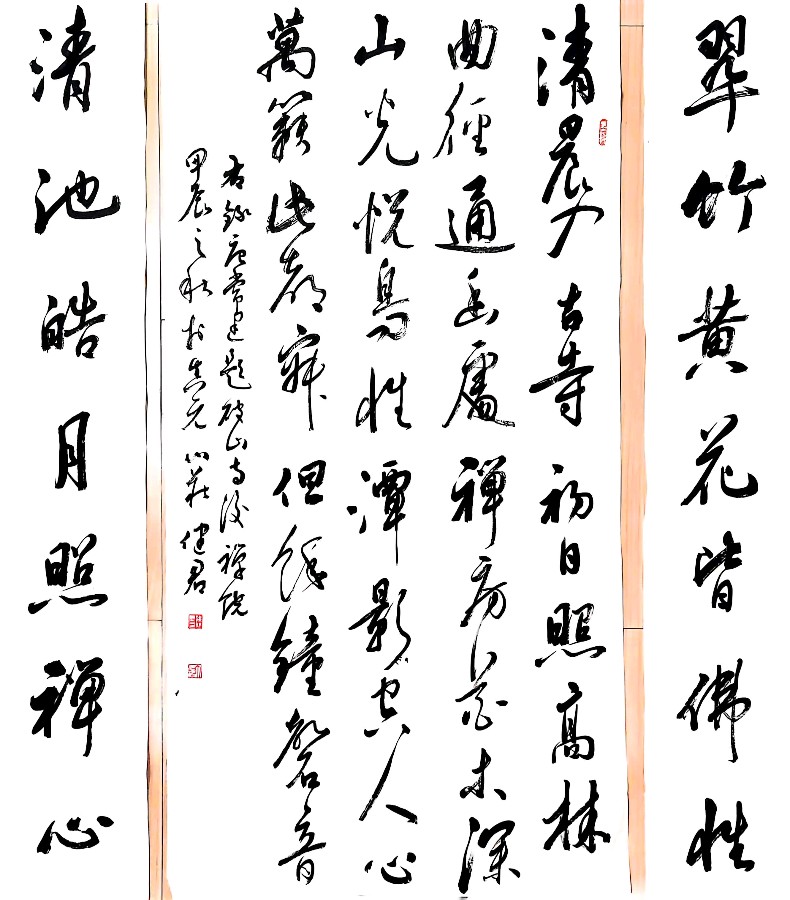 翠竹黄花皆佛性
清晨入古寺初日照高林
曲徑通幽處禅房花木深
山光悦鳥性潭影空人心
萬籟此都寂但餘鐘磬音
右錄唐常建題破山寺後禅院
甲辰之秋於元健君
清池皓月照禅心